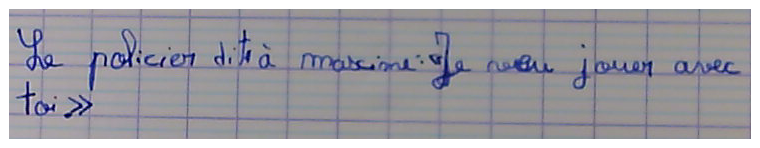 Le policier dit à maxime: "Je veu jouer avec
toi >>